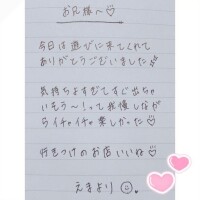 お兄様へ♡
今日は遊びに来てくれて
ありがとうございました
気持ちよすぎてすぐ出ちゃ
いそう〜!って我慢しなが
らイチャイチャ楽しかった♡
行きつけのお店いいね♡
えまより